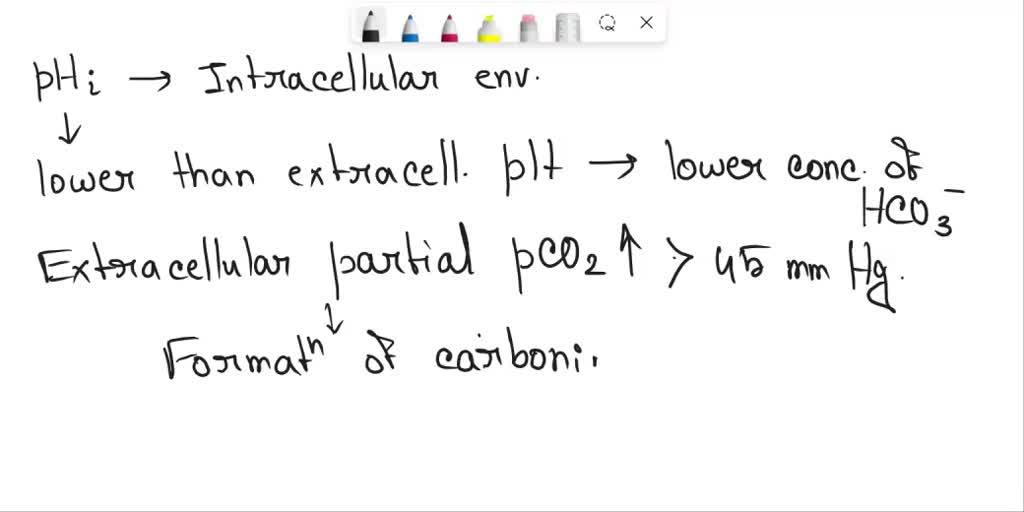 pHi → Intracellular env.
↓
lower than extracell. pH → lower conc. of
HCO3⁻
Extracellular partial pCO2 ↑ > 45 mm Hg.
↓
Formatⁿ of carboni.